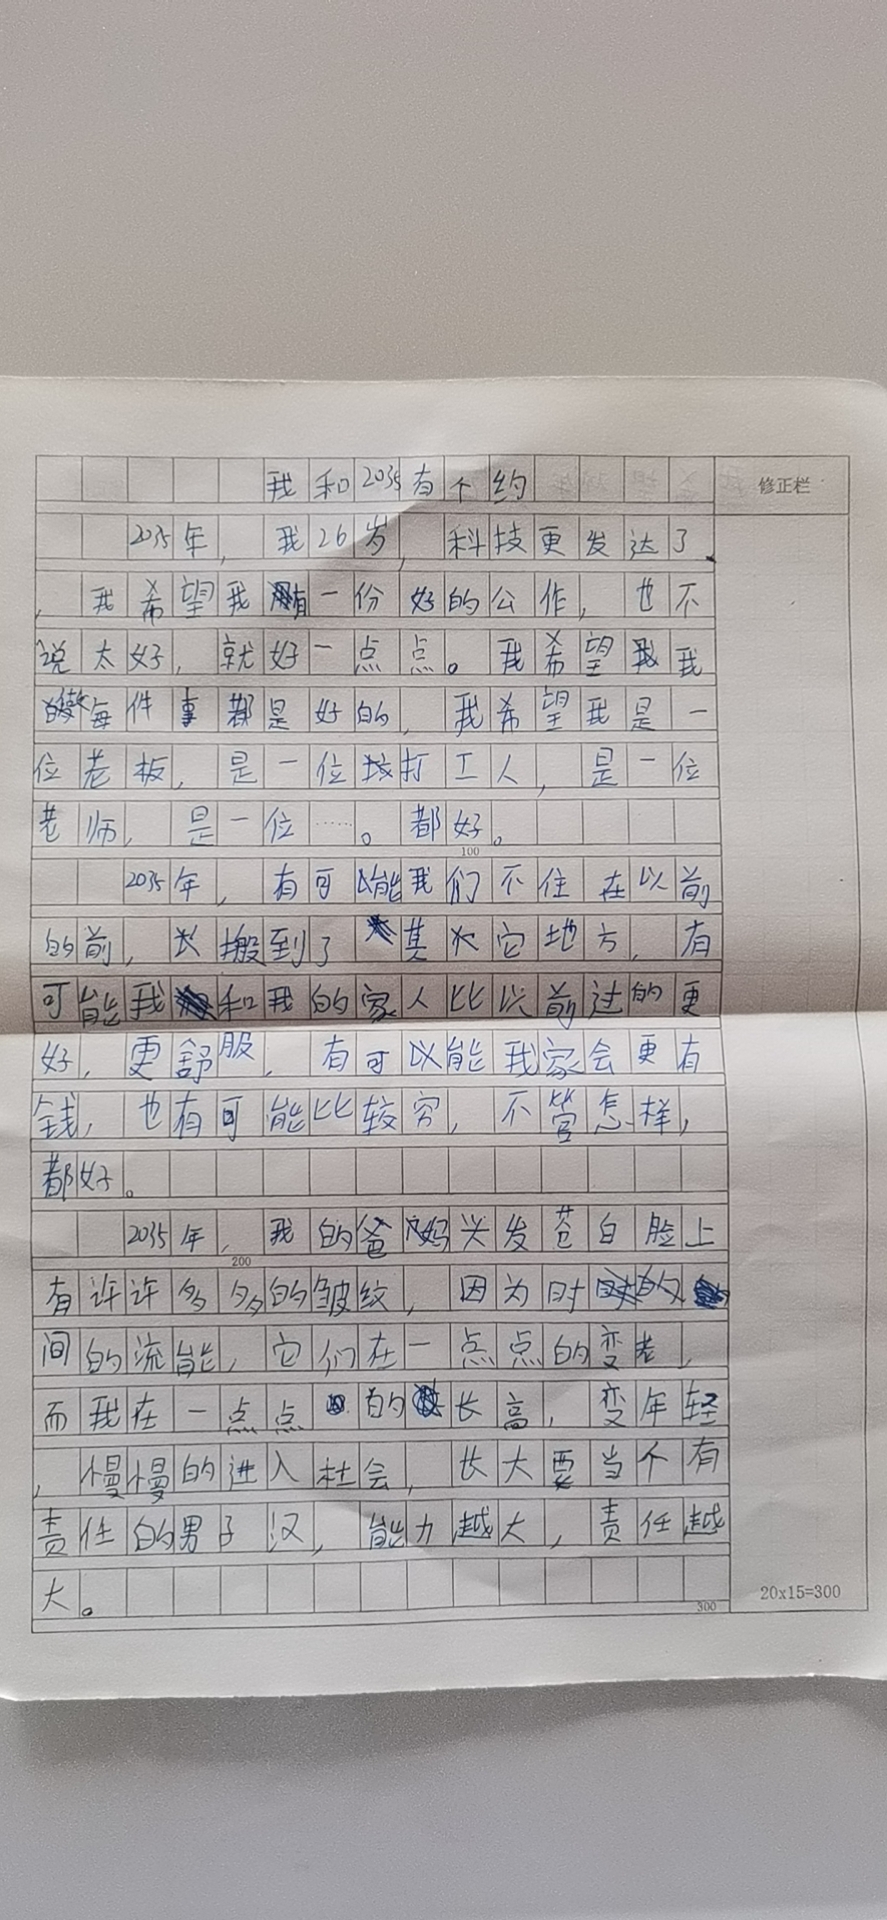 我和2035有个约
修正栏
2035年，我26岁，科技更发达了
，我希望我有一份好的公作，也不
说太好，就好一点点。我希望我
做每件事都是好的，我希望我是一
位老板，是一位打工人，是一位
老师，是一位……。都好。
100
2035年，有可能我们不住在以前
的前，搬到了其它地方，有
可能我和我的家人比以前过的更
好，更舒服，有可以能我家会更有
钱，也有可能比较穷，不管怎样，
都好。
2035年，我的爸妈头发苍白脸上
200
有许许多多的皱纹，因为时
间的流能，它们在一点点的变老，
而我在一点点的长高，变年轻
，慢慢的进入社会，长大要当个有
责任的男子汉，能力越大，责任越
大。
20x15=300
300